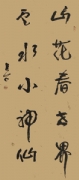 山花春世界
雲水小神仙